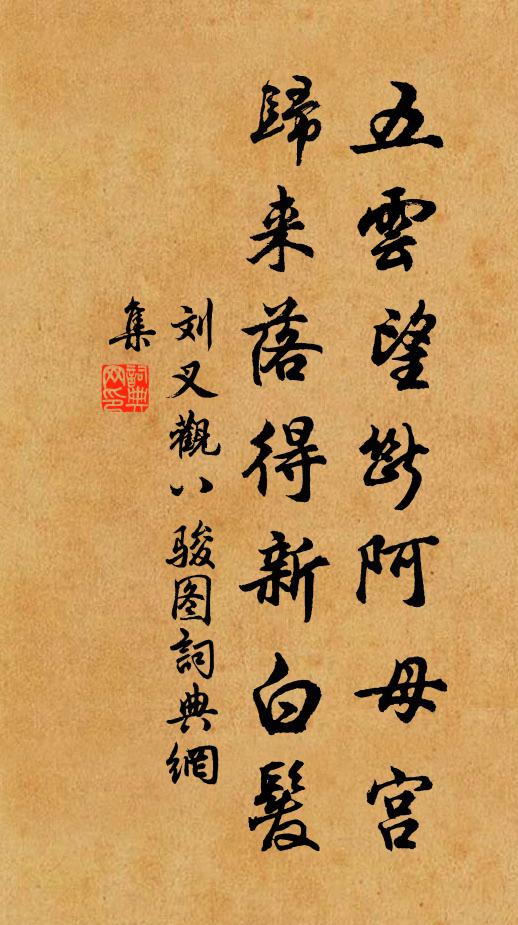 五雲望斷阿母宮
歸来落得新白髮
刘叉觀八駿图詞典網
集
詞典网印